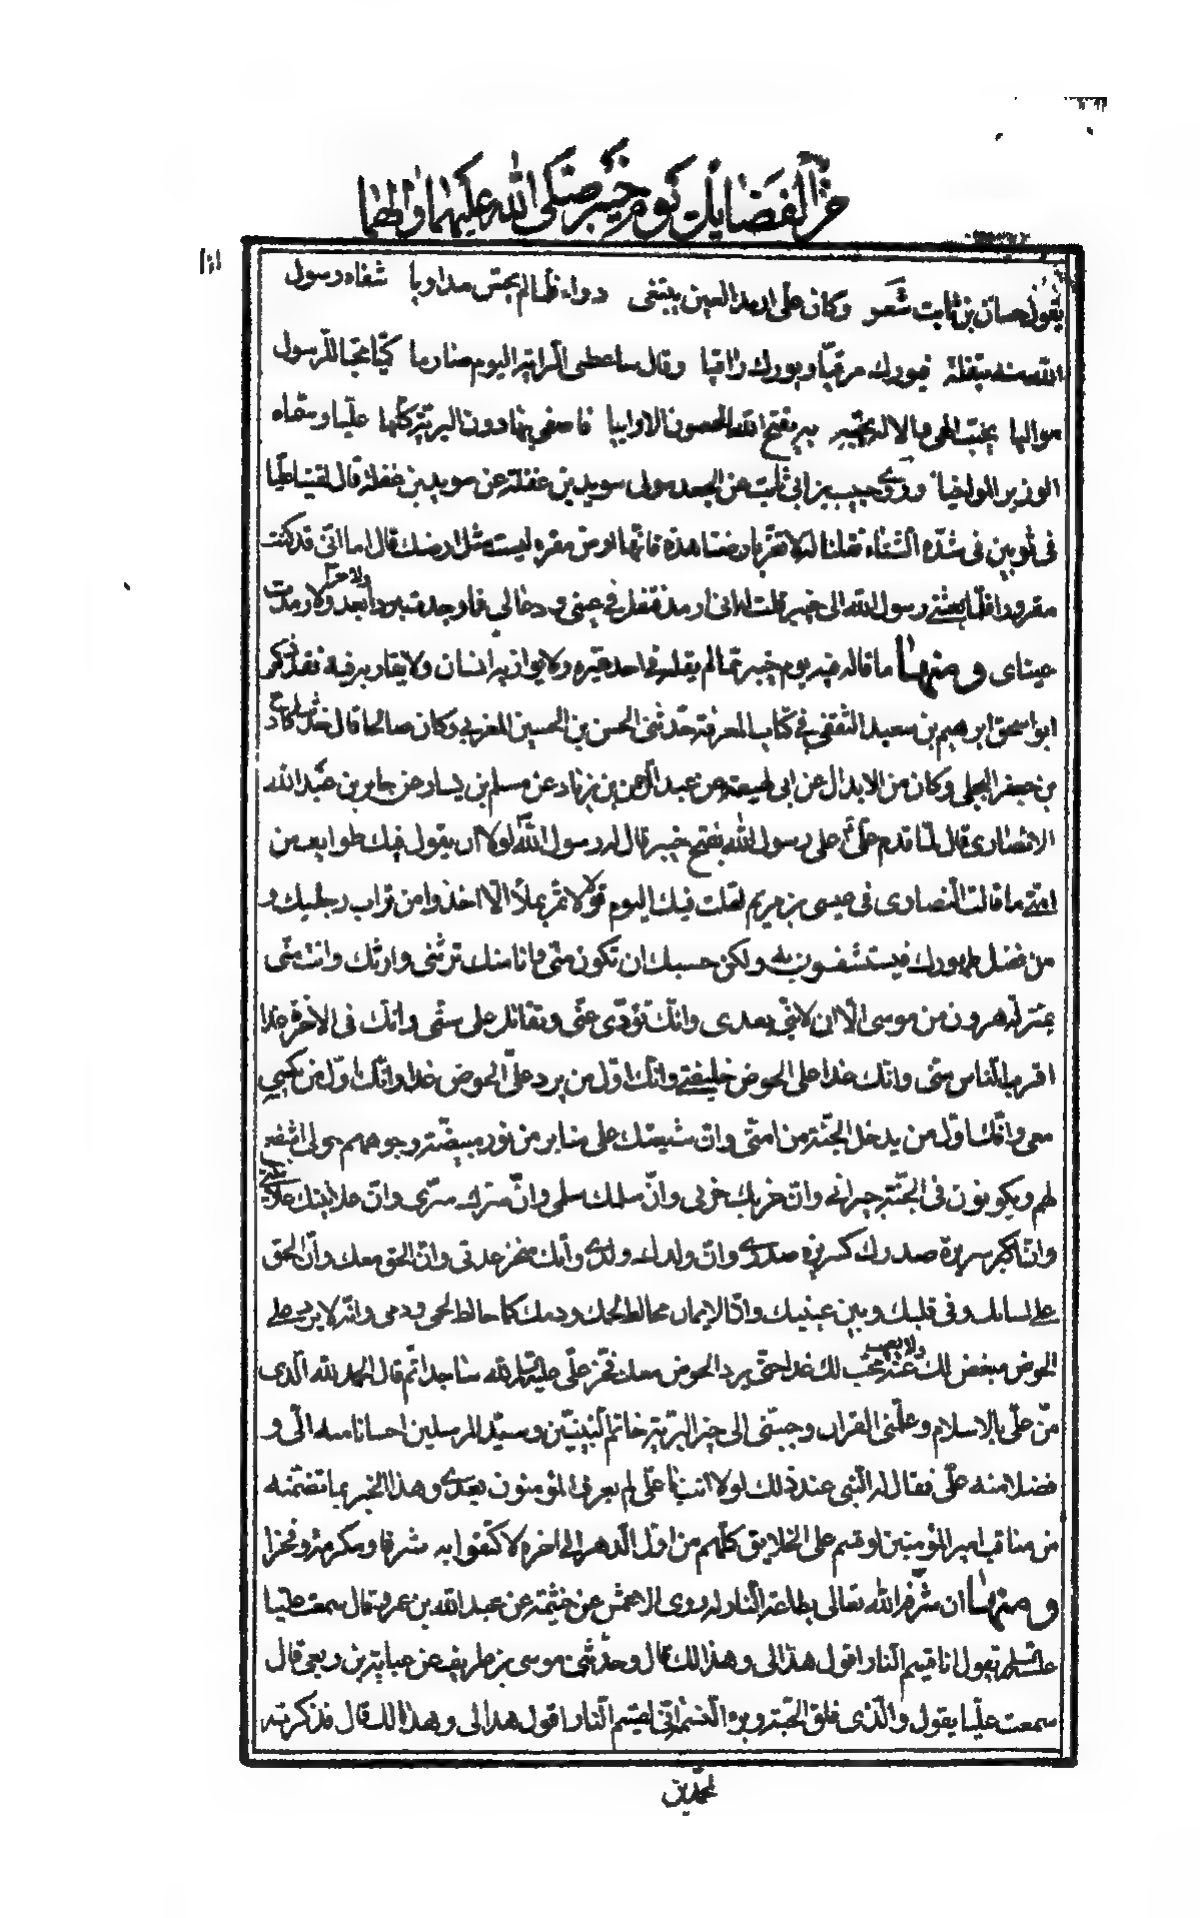 من الفضايل يوم خيبر صلى الله عليهما والهما
يقول حسان بن ثابت شعر وكان علي ارمد العين يبتغي دواء فلما لم يحس مداويا شفاه رسول
الله منه بتفلة فبورك مرقيا وبورك راقيا وقال ساعطي الراية اليوم صارما كميا محبا للرسول
مواليا يحب الهي والاله يحبه به يفتح الله الحصون الاوابيا فاصفى بها دون البرية كلها عليا وسماه
الوزير المواخيا وروى حبيب بن ابي ثابت عن الجعد مولى سويد بن غفلة عن سويد بن غفلة قال لقينا عليا
في ثوبين في شدة الشتاء فقلنا له لا تغتر بارضنا هذه فانها ارض مقره ليست مثل ارضك قال اما اني قد كنت
مقرورا فلما بعثني رسول الله الى خيبر قلت له اني ارمد فتفل في عيني ودعا لي فما وجدت بردا بعد ولا حرا ولا رمدت
عيناي ومنها ما قاله فيه يوم خيبر مما لم يقله في احد غيره ولا يوازيه انسان ولا يقاربه فيه فقد ذكر
ابو اسحق ابرهيم بن سعيد الثقفي في كتاب المعرفة حدثني الحسن بن الحسين المغربي وكان صالحا قال حدثنا كادح
بن جعفر البجلي وكان من الابدال عن ابي لهيعة عن عبد الرحمن بن زياد عن مسلم بن يسار عن جابر بن عبد الله
الانصاري قال لما قدم علي على رسول الله بفتح خيبر قال له رسول الله لولا ان يقول فيك طوايف من
امتي ما قالت النصارى في عيسى بن مريم لقلت فيك اليوم قولا لا تمر بملأ الا اخذوا من تراب رجليك و
من فضل طهورك فيستشفون به ولكن حسبك ان تكون مني وانا منك ترثني وارثك وانت مني
بمنزلة هرون من موسى الا انه لا نبي بعدي وانك تؤدي عني وتقاتل على سنتي وانك في الاخرة غدا
اقرب الناس مني وانك غدا على الحوض خليفتي وانك اول من يرد علي الحوض غدا وانك اول من يكسى
معي وانك اول من يدخل الجنة من امتي وان شيعتك على منابر من نور مبيضة وجوههم حولي اشفع
لهم ويكونون في الجنة جيراني وان حربك حربي وان سلمك سلمي وان سرك سري وان علانيتك علانيتي
وان سريرة صدرك كسريرة صدري وان ولدك ولدي وانك منجز عدتي وان الحق معك وان الحق
على لسانك وفي قلبك وبين عينيك وان الايمان مخالط لحمك ودمك كما خالط لحمي ودمي وانه لا يرد علي
الحوض مبغض لك ولا يغيب عنه محب لك غدا حتى يرد الحوض معك فخر علي عليه السلام لله ساجدا ثم قال الحمد لله الذي
من علي بالاسلام وعلمني القران وحببني الى خير البرية خاتم النبيين وسيد المرسلين احسانا منه الي و
فضلا منه علي فقال له النبي عند ذلك لولا انت يا علي لم يعرف المؤمنون بعدي وهذا الخبر بما تضمنه
من مناقب امير المؤمنين لو قسم على الخلايق كلهم من اول الدهر الى اخره لاكتفوا به شرفا ومكرمة وفخرا
ومنها ان شرفه الله تعالى بطاعة النار له روى الاعمش عن خيثمة عن عبد الله بن عمر قال سمعت عليا
عليه السلام يقول انا قسيم النار اقول هذا لي وهذا لك قال وحدثني موسى بن طريف عن عباية بن ربعي قال
سمعت عليا يقول والذي فلق الحبة وبرء النسم اني لقسيم النار اقول هذا لي وهذا لك قال فذكرته
لمحمد بن